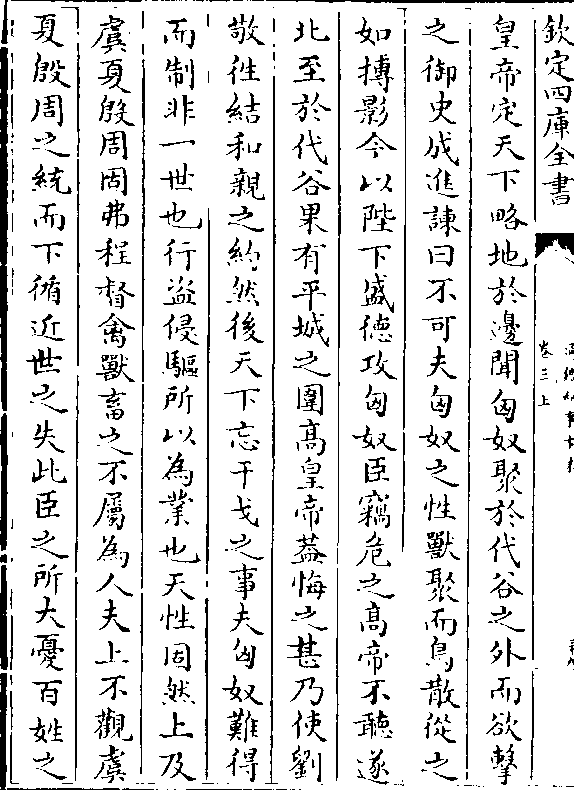 欽定四庫全書
卷三上
皇帝定天下略地於邊聞匈奴聚於代谷之外而欲擊
之御史成進諫曰不可夫匈奴之性獸聚而鳥散從之
如搏影今以陛下盛德攻匈奴臣竊危之髙帝不聽遂
北至於代谷果有平城之圍髙皇帝葢悔之甚乃使劉
敬徃結和親之約然後天下忘干戈之事夫匈奴難得
而制非一世也行盗侵驅所以為業也天性固然上及
虞夏殷周固弗程督禽獸畜之不屬為人夫上不觀虞
夏殷周之統而下循近世之失此臣之所大憂百姓之